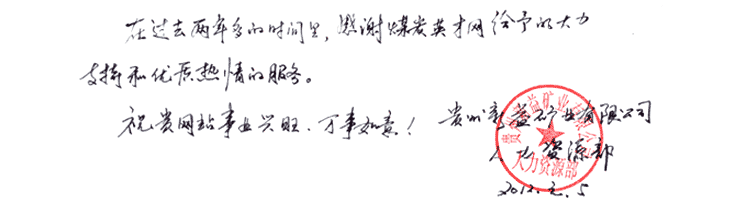 在过去两年多的时间里,感谢煤炭英才网给予的大力
支持和优质热情的服务。
祝贵网站事业兴旺、万事如意!
贵州益矿业有限公司
人力资源部
人力资源部